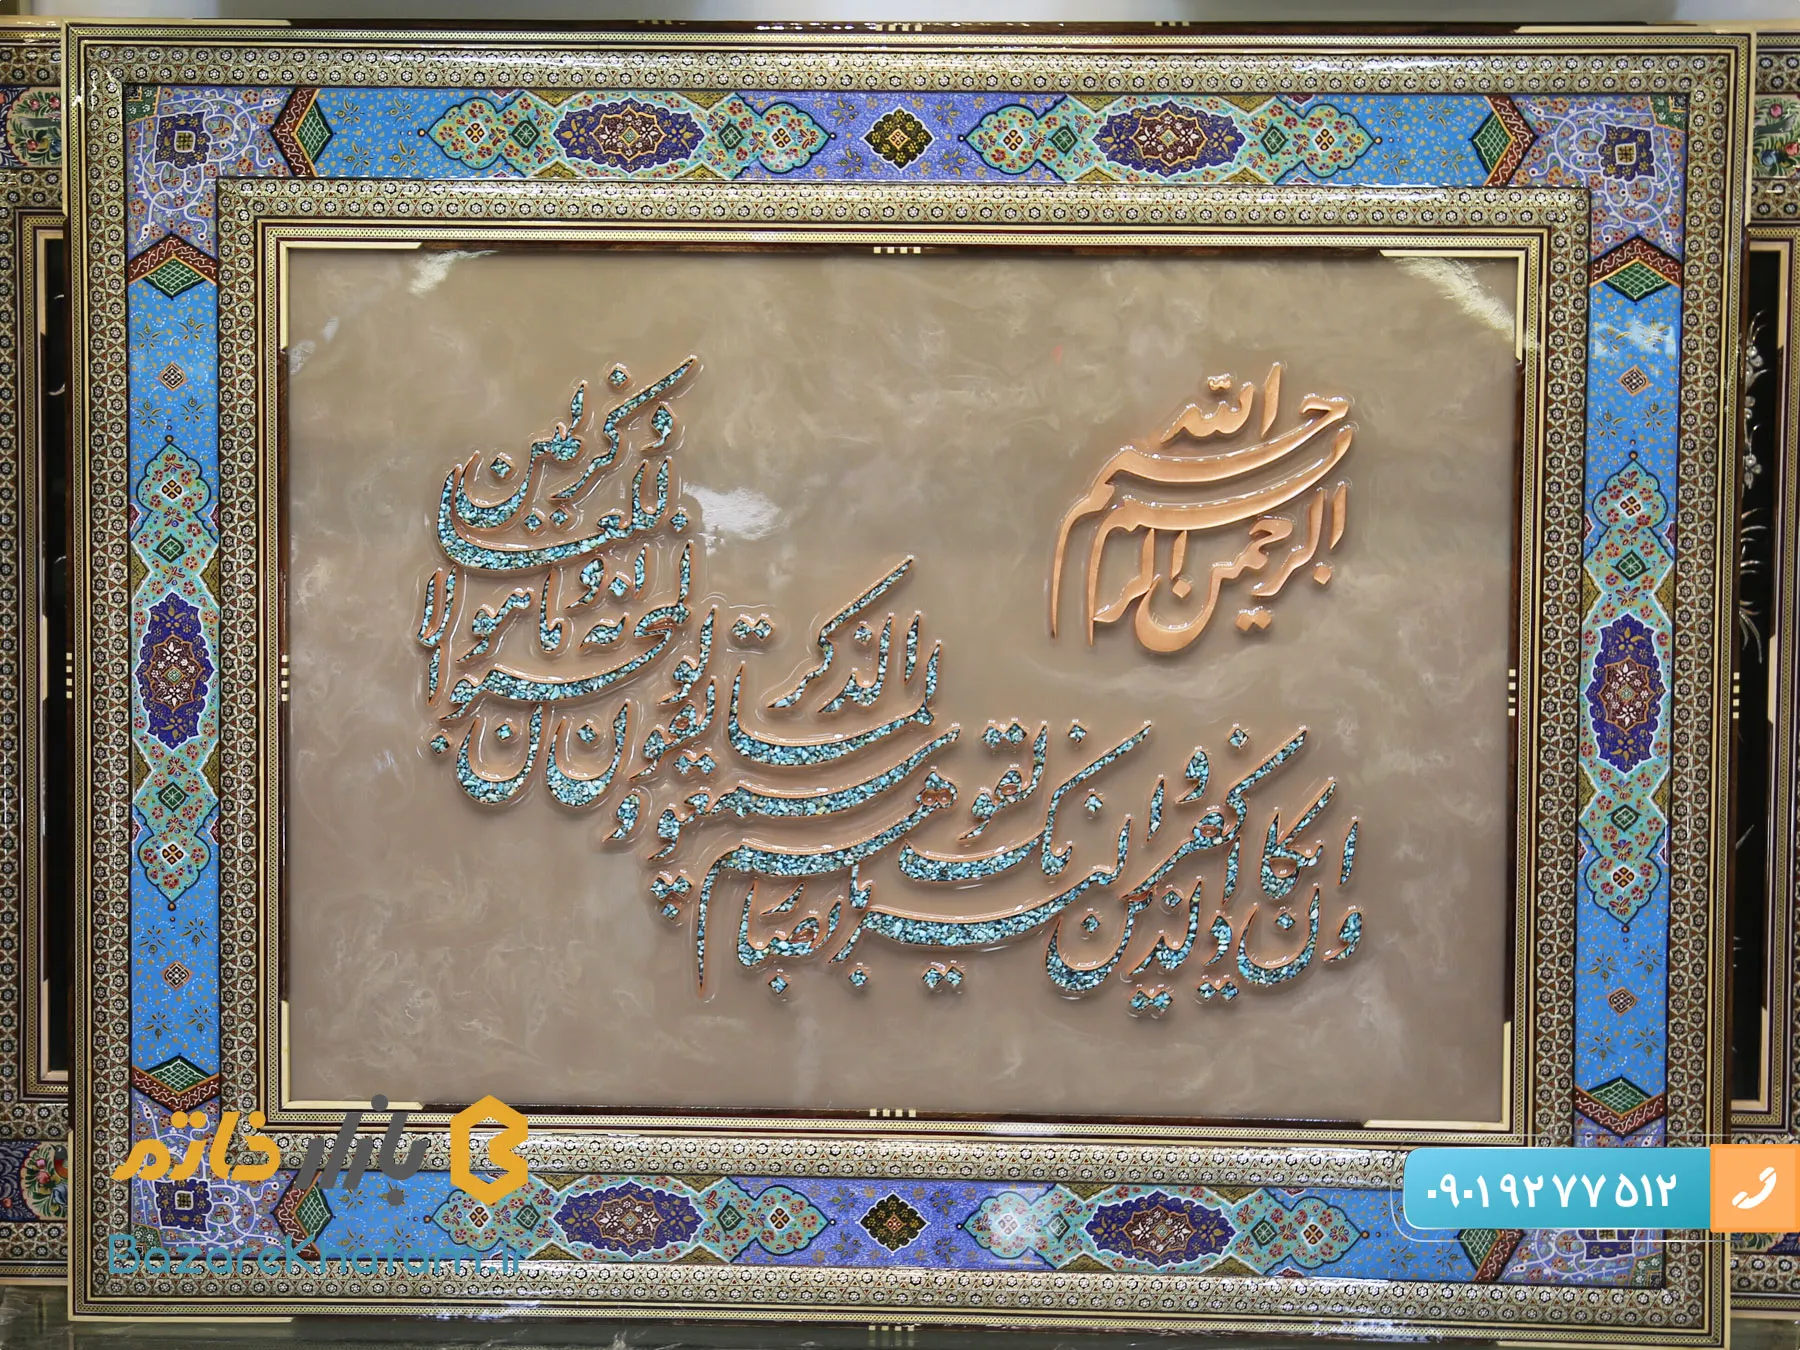 بسم الله الرحمن الرحیم
وان یکاد الذین کفروا لیزلقونک بابصارهم
لما سمعوا الذکر و یقولون انه
لمجنون و ما هو الا
ذکر للعالمین
بازار خاتم
BazareKhatam.ir
۰۹۰۱ ۹۲ ۷۷ ۵۱۲